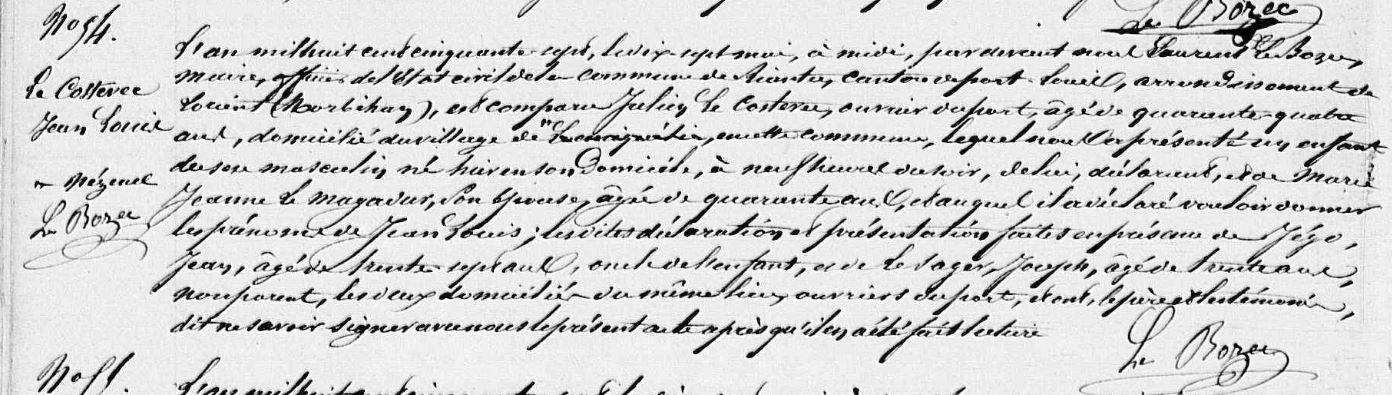 Le Bozec
No 54.
Le Costevec
Jean Louis
Nézenel
Le Bozec
L'an mil huit cent cinquante-sept, le dix sept mai, à midi, par devant nous Laurent Le Bozec,
maire, officier de l'état civil de la commune de Riantec, canton de port-Louis, arrondissement de
Lorient (Morbihan), est comparu Julien Le Costevec, ouvrier du port, âgé de quarante-quatre
ans, domicilié du village de, en cette commune, lequel nous a présenté un enfant
du sexe masculin né hier en son Domicile, à neuf heures du soir, de lui, déclarant, et de Marie
Jeanne Le Magadur, son Epouse, âgée de quarante ans, et auquel il a déclaré vouloir donner
les prénoms de Jean Louis; les dites déclaration et présentation faites en présence de Jégo,
Jean, âgé de trente-sept ans, oncle de l'enfant, et de Le Sager, Joseph, âgé de trente ans,
non parent, les deux domiciliés du même lieu, ouvriers du port, et ont, le père et les témoins,
dit ne savoir signer avec nous le présent acte après qu'il en a été fait lecture
Le Bozec
No 55.
L'an mil huit cent cinquante